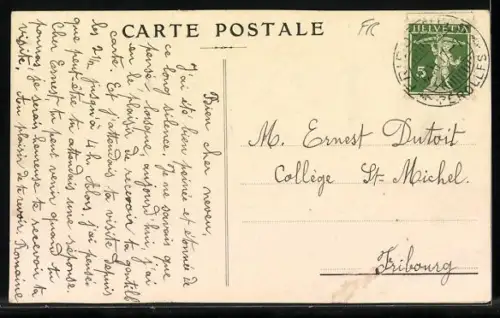 CARTE POSTALE
FR
HELVETIA
5
PEROLLES
M. Ernest Dutoit
Collège St-Michel.
Fribourg
Bien cher neveu,
J'ai été bien peinée et étonnée de
ce long silence. Je ne savais que
penser lorsque, aujourd'hui, j'ai
eu le plaisir de recevoir ta gentille
carte. Et j'attendais ta visite depuis
les 2½ jusqu'à 4 h. Alors, j'ai pensé
que peut-être tu attendais une réponse.
Cher Ernest, tu peux venir quand tu
pourras, je serais heureuse de recevoir ta
visite. Au plaisir de te revoir. Romaine